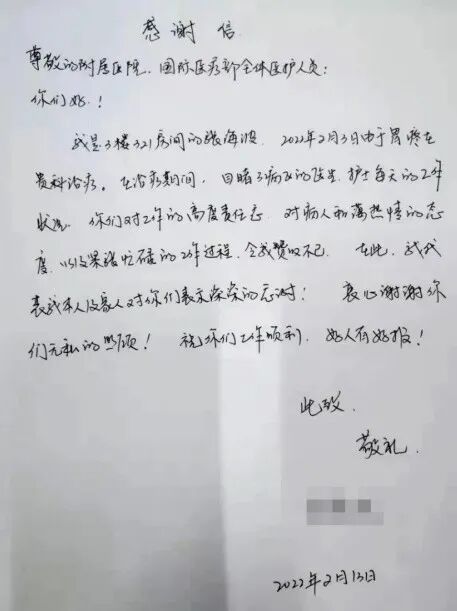 感谢信
尊敬的附属医院、国际医疗部全体医护人员:
你们好!
我是3楼321房间的张海波, 2022年2月3日由于胃疼在
贵科治疗。在治疗期间, 目睹了病区的医生、护士每天的工作
状况, 你们对工作的高度责任感, 对病人和蔼热情的态
度, 以及紧张忙碌的工作过程, 令我赞叹不已. 在此, 我代
表我本人及家人对你们表示深深的感谢! 衷心谢谢你
们无私的照顾! 祝你们工作顺利, 好人有好报!
此致、
敬礼
2022年2月13日